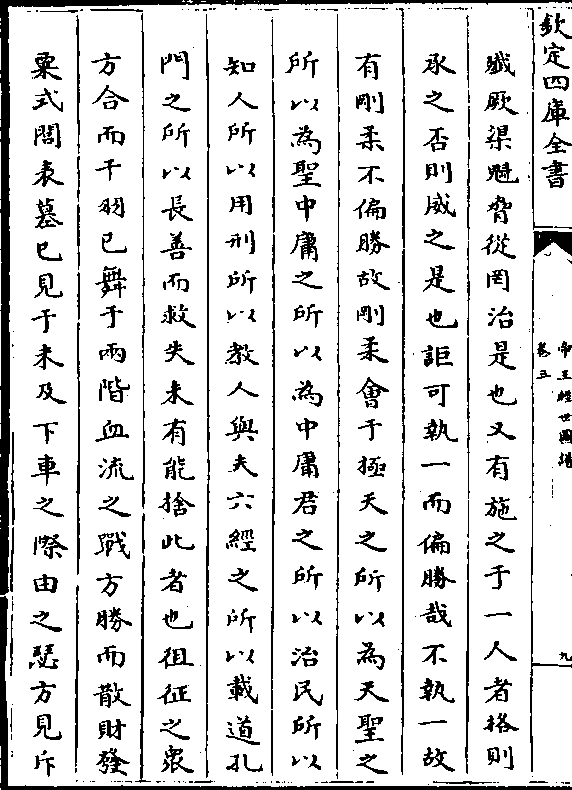 欽定四庫全書
帝王經世圖譜
卷五
九
殲厥渠魁脅從罔治是也又有施之于一人者格則
承之否則威之是也詎可執一而偏勝哉不執一故
有剛柔不偏勝故剛柔會于極天之所以為天聖之
所以為聖中庸之所以為中庸君之所以治民所以
知人所以用刑所以教人與夫六經之所以載道孔
門之所以長善而救失未有能捨此者也徂征之衆
方合而干羽已舞于兩階血流之戰方勝而散財發
粟式閭表墓已見于未及下車之際由之瑟方見斥